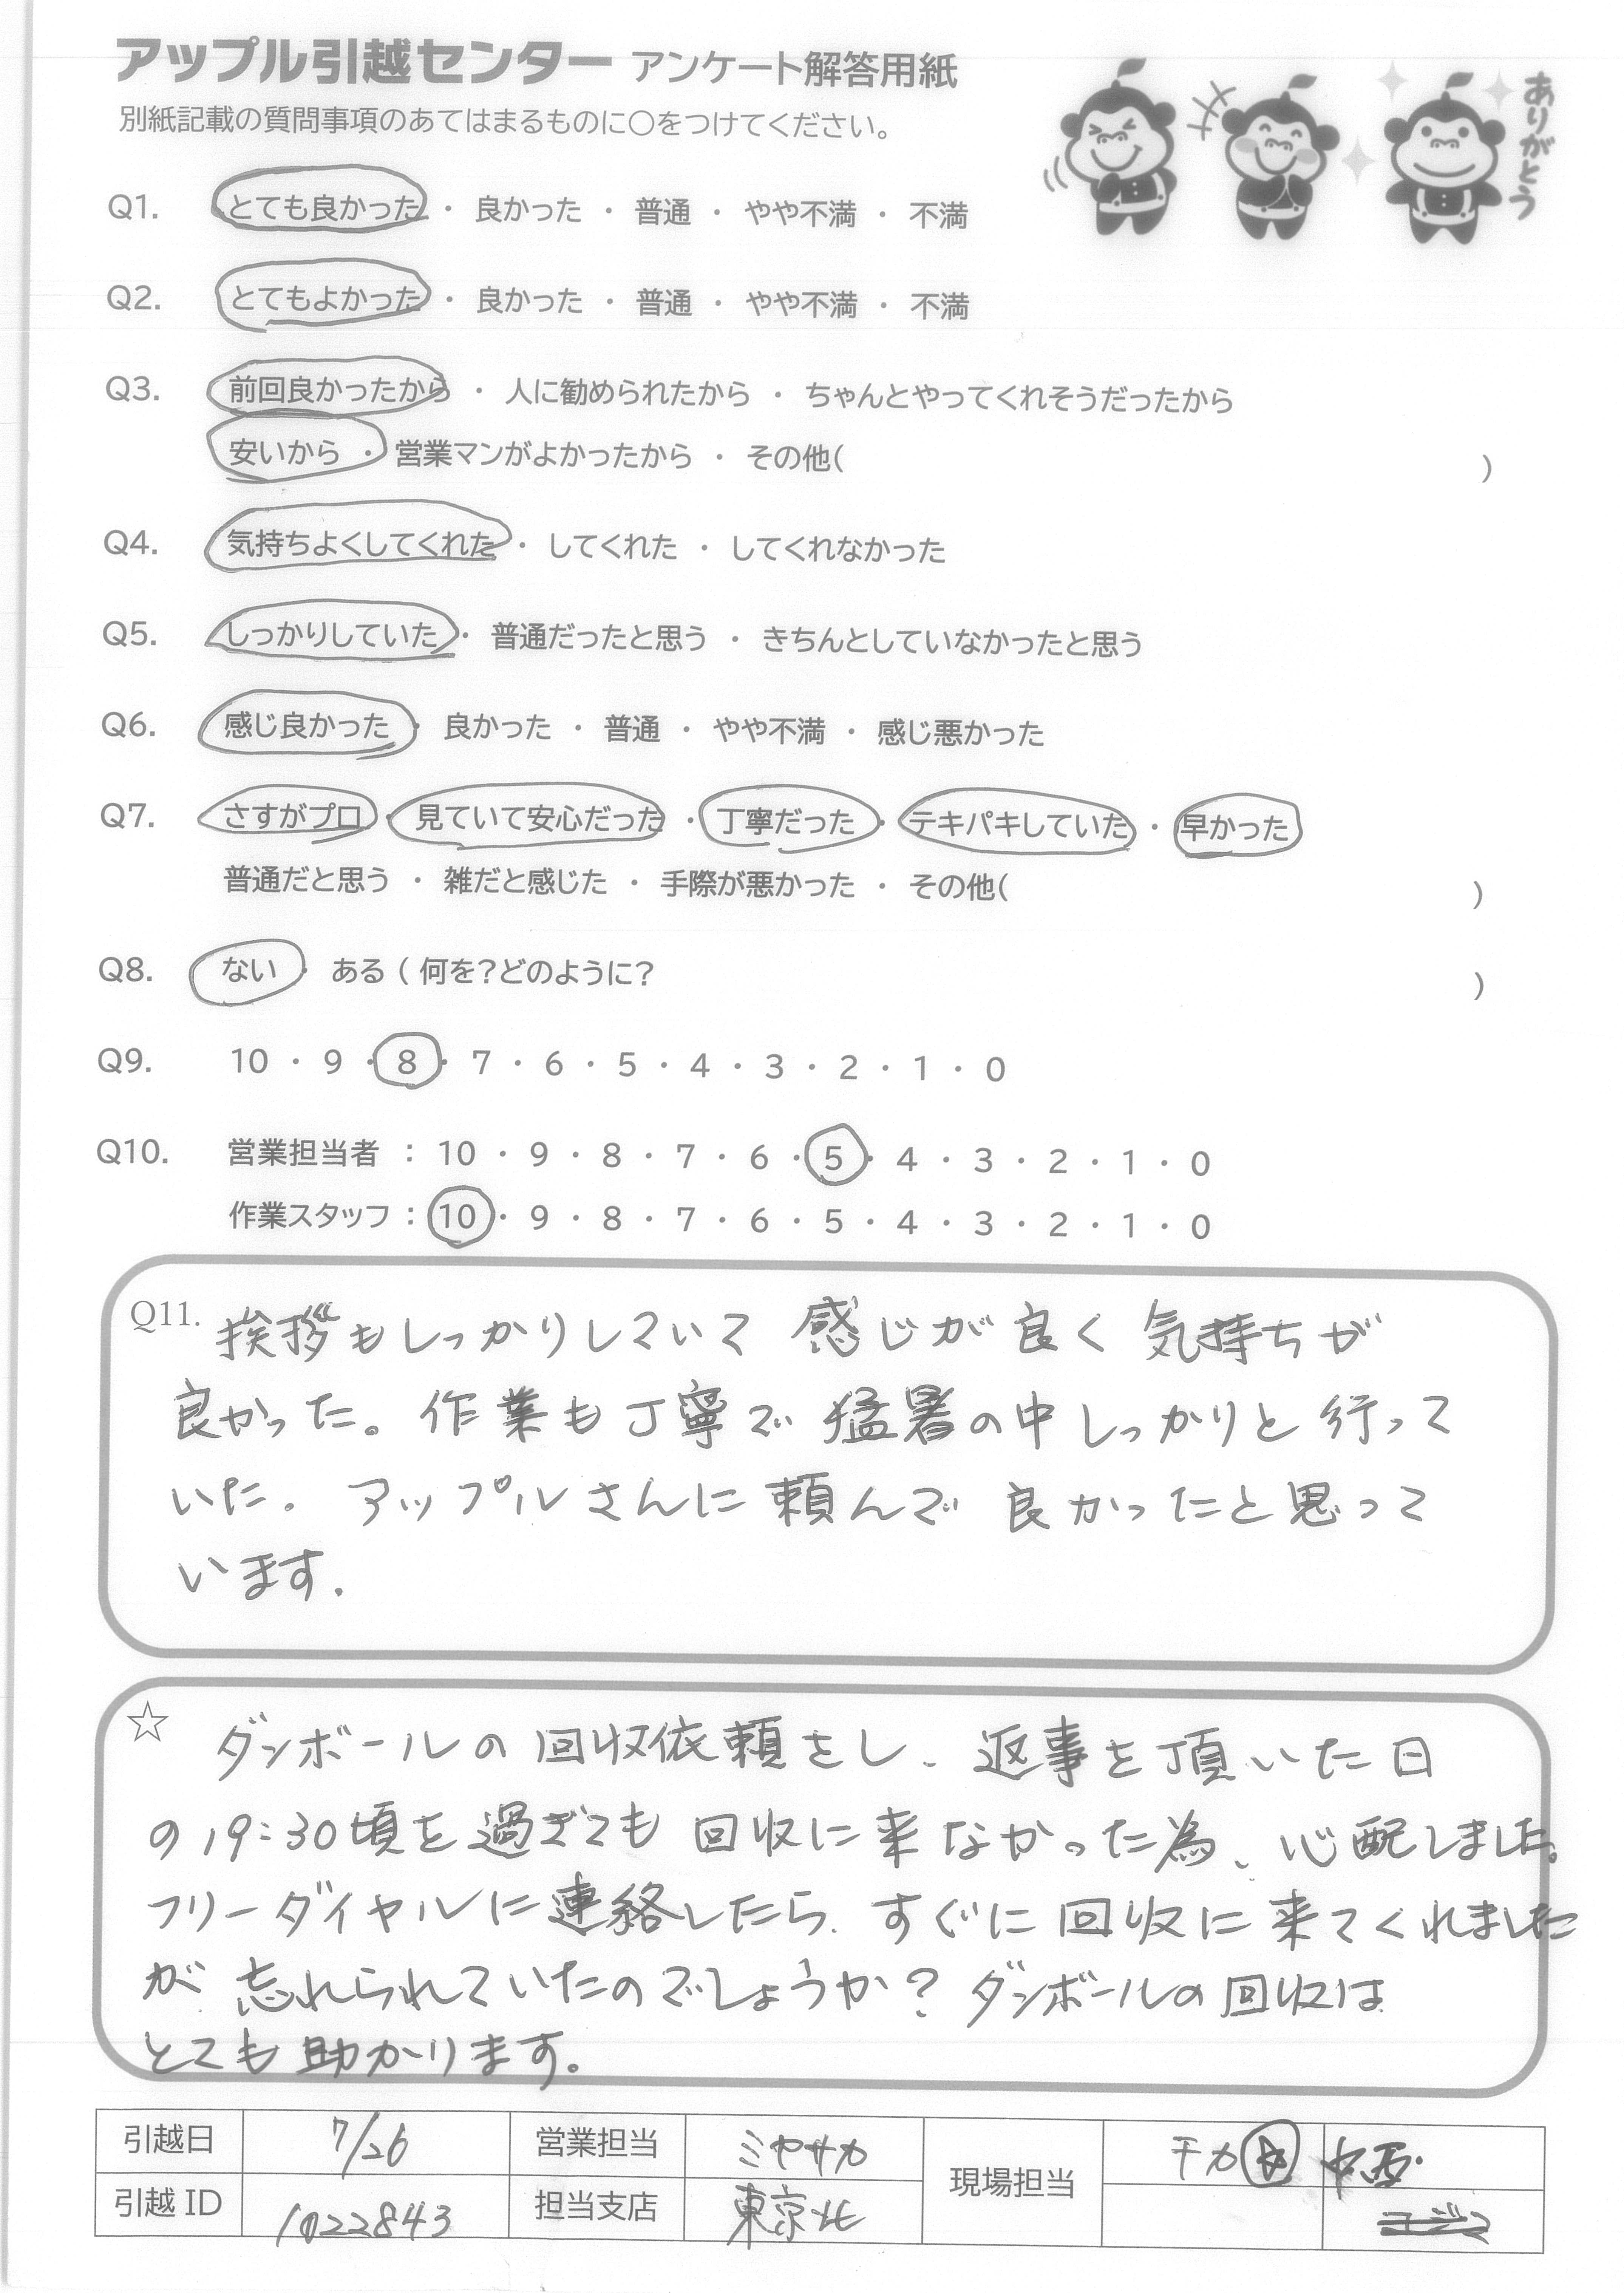 アップル引越センター アンケート解答用紙
別紙記載の質問事項のあてはまるものに○をつけてください。
ありがとう
Q1. とても良かった ・ 良かった ・ 普通 ・ やや不満 ・ 不満
Q2. とてもよかった ・ 良かった ・ 普通 ・ やや不満 ・ 不満
Q3. 前回良かったから ・ 人に勧められたから ・ ちゃんとやってくれそうだったから
安いから ・ 営業マンがよかったから ・ その他( )
Q4. 気持ちよくしてくれた ・ してくれた ・ してくれなかった
Q5. しっかりしていた ・ 普通だったと思う ・ きちんとしていなかったと思う
Q6. 感じ良かった ・ 良かった ・ 普通 ・ やや不満 ・ 感じ悪かった
Q7. さすがプロ ・ 見ていて安心だった ・ 丁寧だった ・ テキパキしていた ・ 早かった
普通だと思う ・ 雑だと感じた ・ 手際が悪かった ・ その他( )
Q8. ない ・ ある ( 何を?どのように? )
Q9. 10 ・ 9 ・ 8 ・ 7 ・ 6 ・ 5 ・ 4 ・ 3 ・ 2 ・ 1 ・ 0
Q10. 営業担当者 : 10 ・ 9 ・ 8 ・ 7 ・ 6 ・ 5 ・ 4 ・ 3 ・ 2 ・ 1 ・ 0
作業スタッフ : 10 ・ 9 ・ 8 ・ 7 ・ 6 ・ 5 ・ 4 ・ 3 ・ 2 ・ 1 ・ 0
Q11. 挨拶もしっかりしていて 感じが良く 気持ちが
良かった。作業も丁寧で 猛暑の中しっかりと行って
いた。アップルさんに頼んで 良かったと思って
います.
☆ ダンボールの回収依頼をし、返事を頂いた日
の19:30頃を過ぎても 回収に来なかった為、心配しました。
フリーダイヤルに連絡したら、すぐに回収に来てくれました
が 忘れられていたのでしょうか? ダンボールの回収は
とても助かります。
引越日 7/26 営業担当 ミヤサカ 現場担当 チカ 中西
引越 ID 1022843 担当支店 東京北